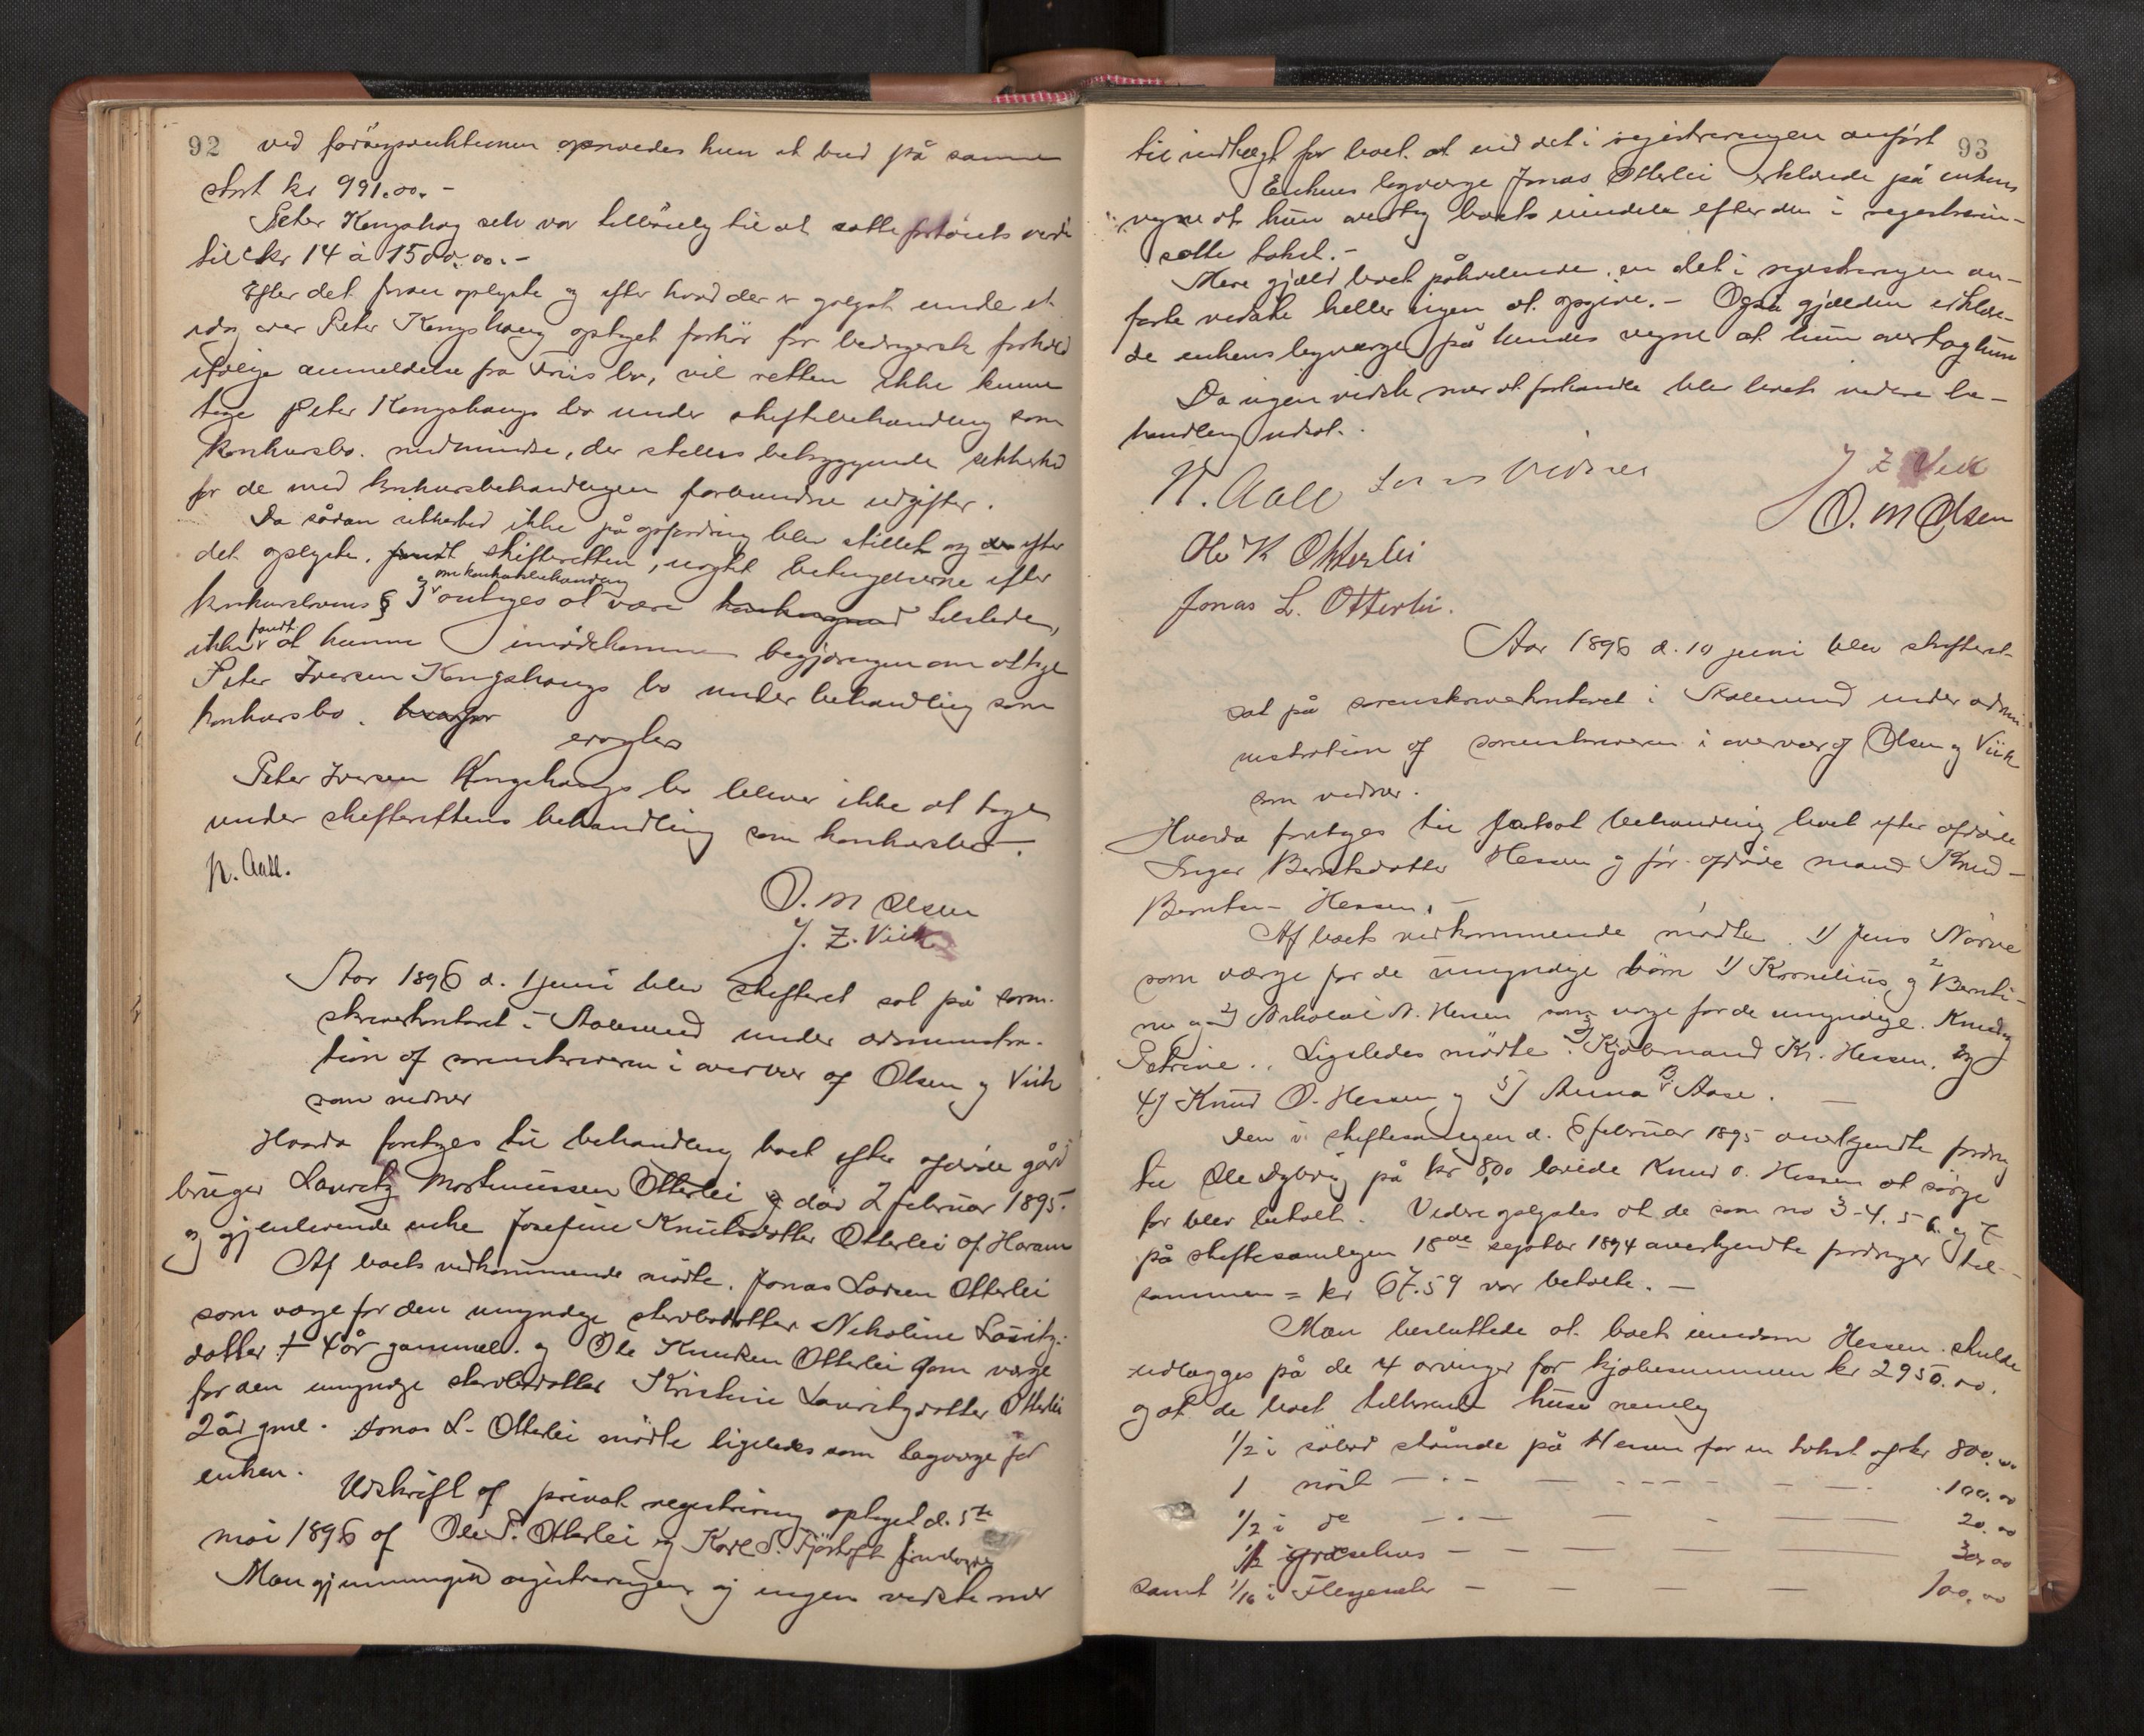 92 ved forøgsauktionen opnaaedes kun et bud på samme
stort kr 991.00.-
Peter Kongshog selv var tilbøielig til at sætte fartøiets verdi
til kr 14 à 1500.00.-
Efter det foran oplyste og efter hvad der er påpegt under et
idag over Peter Kongshaug optaget forhør for bedragersk forhold
ifølge anmeldelse fra Friis bo, vil retten ikke kunne
tage Peter Kongshaugs bo under skiftebehandling som
konkursbo. medmindre, der stilles betryggende sikkerhed
for de med konkursbehandlingen forbundne udgifter.
Da sådan sikkerhed ikke på opfordring blev stillet og efter
det oplyste. fandt skifteretten, uagtet betingelserne efter
om konkursbehandling
konkurslovens § 3 antages at være tilstede,
ikke fandt at kunne imødekomme begjæringen om at tage
Peter Iversen Kongshaugs bo under behandling som
konkursbo. hvorfor
eragtes
Peter Iversen Kongshaugs bo bliver ikke at tage
under skifterettens behandling som konkursbo.
N. Aall.
O. M Olsen
J. Z. Viik
Aar 1896 d. 1 juni blev skifteret sat på soren-
skriverkontoret i Aalesund under administra-
tion af sorenskriveren i overvær af Olsen og Viik
som vidner
Hvorda foretages til behandling boet efter afdøde gård
bruger Lauritz Mortinussen Otterlei død 2 februar 1895.
og gjenlevende enke Josefine Knutsdatter Otterlei af Haram
Af boets vedkommende mødte. Jonas Larsen Otterlei
som værge for den umyndige stervbodatter Nikoline Lauritz-
datter 4 år gammel. og Ole Knutsen Otterlei som værge
for den umyndige stervbodatter Kristine Lauritzdatter Otterlei
2 år gml. Jonas L. Otterlei mødte ligeledes som lagværge for
enken.
Udskrift af privat registrering optaget d. 5te
mai 1896 af Ole P. Otterlei og Karl S. Fjørtoft fremlagdes
Man gjennemgik registreringen og ingen vidste mer
93
til indtægt for boet. at end det i registreringen anført
Enkens lagværge Jonas Otterlei erklærede på enkens
vegne at hun overtog boets eiendele efter den i registrerin-
satte takst.-
Mere gjæld boet påhvilende, en det i registreringen an-
førte vidste heller ingen at opgive.- Også gjælden erklære-
de enkens lagværge på hendes vegne at hun overtog
Da ingen vidste mer at forhandle blev boets videre be-
handling udsat.
N. Aall
J Z Viik
O. M Olsen
Ole K Otterlei
Jonas L. Otterlei.
Aar 1896 d. 10 juni blev skifteret
sat på sorenskriverkontoret i Aalesund under admi-
nistration af sorenskriveren i overvær af Olsen og Viik
som vidner.
Hvorda foretages til fortsat behandling boet efter afdøde
Inger Berntsdatter Hessen og før afdøde mand Knud
Berntsen Hessen.-
Af boets vedkommende mødte. 1/ Jens Nørve
som værge for de umyndige børn 1/ Kornelius, og 2 Bernti-
ne og 2/ Nikolai N. Hessen som værge for de umyndige. Knud og
Petrine.. Ligeledes mødte 3/ Kjøbmand Kr. Hessen, og
4/ Knud O. Hessen og 5/ Anna B Aase.
Den i skiftesamlingen d. 6 februar 1895 anerkjendte fordring
til Ole Dybvig på kr 8,00 lovede Knud O. Hessen at sørge
for blev betalt. Videre oplystes at de som no 3-4. 5 6. og 7
på skiftesamlingen 18de septbr 1894 anerkjendte fordringer til-
sammen = kr 67.59 var betalte.-
Man besluttede at boets eiendom Hessen skulde
udlægges på de 4 arvinger for kjøbesummen kr 2950.00.
og at de boet tilhørende huse nemlig
1/2 i søbod stående på Hessen for en takst af kr 800.00
1 nøst — · — — — — — 100.00
1/2 i do — · — — — — 20.00
1/2 i græshus — — — — 30.00
samt 1/16 i Flegesæter — — — — 100.00